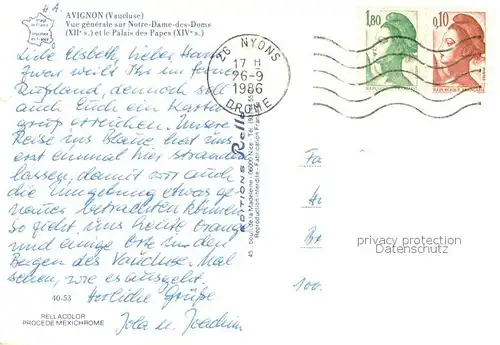 H.A.
AVIGNON (Vaucluse)
Vue générale sur Notre-Dame-des-Doms
(XIIe s.) et le Palais des Papes (XIVe s.)
Liebe Elsbeth, lieber Hans
zwar weilt Ihr im fernen
Rußland, dennoch soll
auch Euch ein Karten
gruß erreichen. Unsere
Reise ins Blaue hat uns
erst einmal hier stranden
lassen, damit wir auch
die Umgebung etwas ge-
nauer betrachten können
So geht's uns heute
und einige Orte in den
Bergen des Vaucluse. Mal
sehen, wie es ausgeht.
Herzliche Grüße
Jola u. Joachim
40-53
RELLACOLOR
PROCEDE MEXICHROME
26 NYONS
17 H
26-9
1986
DROME
1,80
0,10
EDITIONS Rella
45 - boul. de la Madeleine - 06000 Nice - Tél.
Reproduction interdite - Fabrication Française
Fa
H
Be
100.
privacy protection
Datenschutz